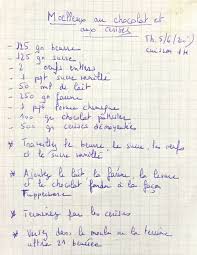 Moelleux au chocolat et
aux cerises
Th. 5/6
cuisson 1H
- 125 gr beurre
- 125 gr sucre
- 2 oeufs entiers
- 1 pqt sucre vanillé
- 50 ml de lait
- 250 gr farine
- 1 pqt levure chimique
- 100 gr chocolat pâtissier
- 500 gr cerises dénoyautées
* Travailler le beurre, le sucre, les oeufs
et le sucre vanillé
* Ajouter le lait, la farine, la levure
et le chocolat fondu à la façon
* Terminer par les cerises
* Verser dans le moule ou la terrine